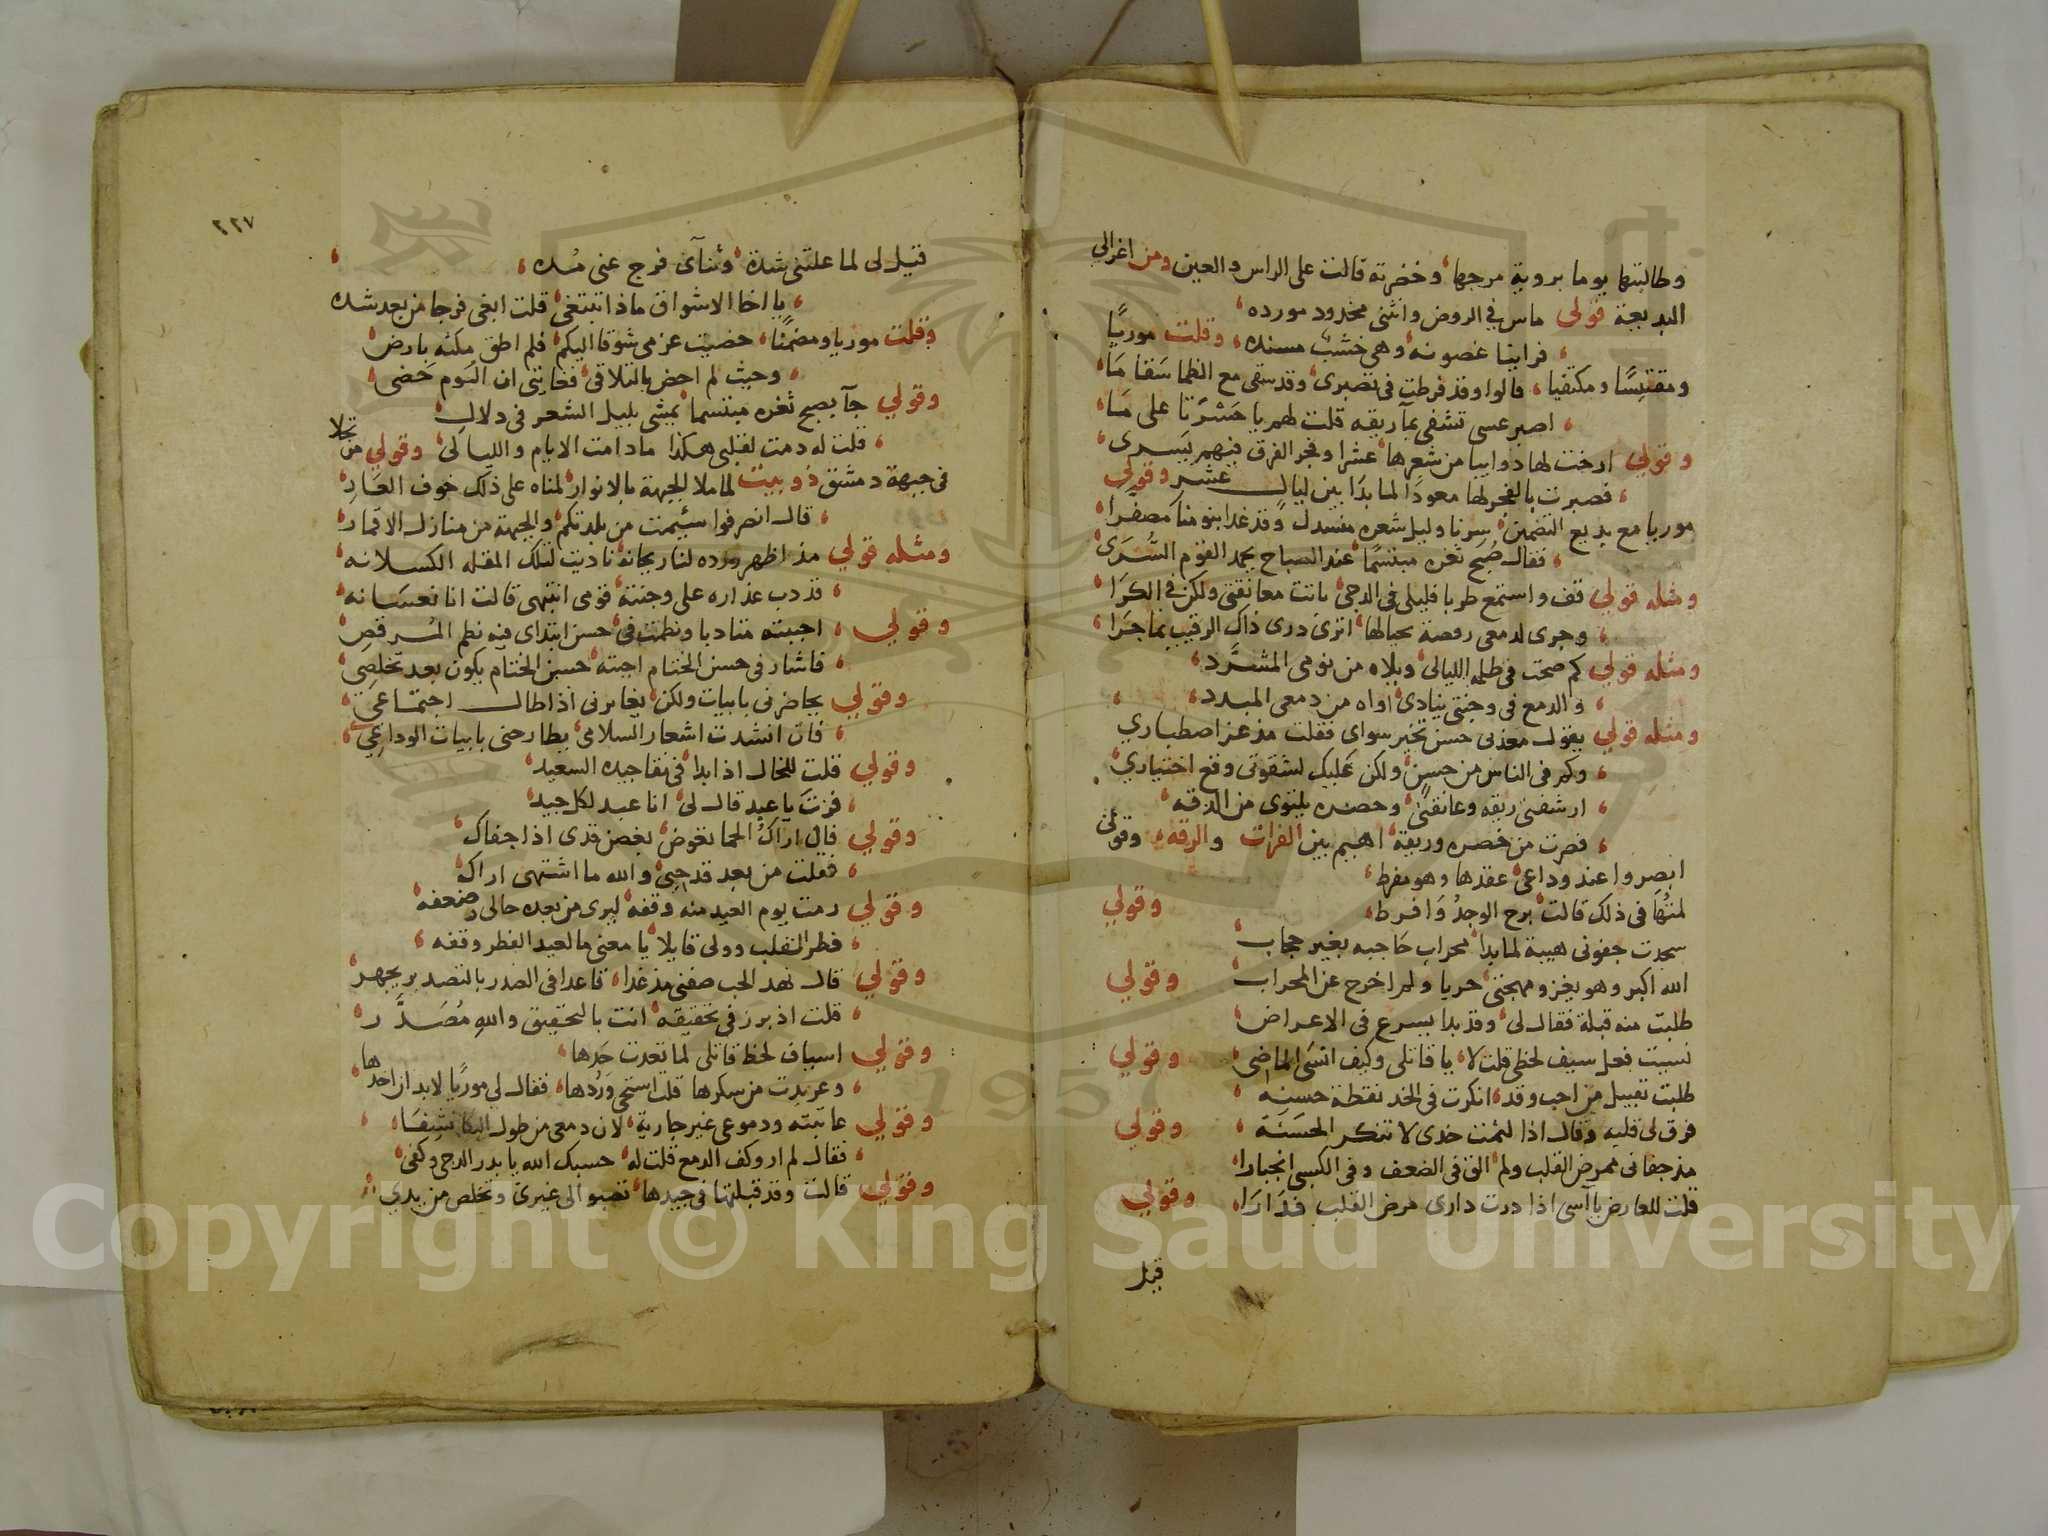 وطالبتها يوما بروية مرجها وخضرته قالت على الراس والعين ومن اغزالي
البديعة قولي ماس في الروض وانثنى بخدود مورده
فراينا غصونه وهي خشب مسنده وقلت موريًا
ومقتبسًا ومكتفيا قالوا وقد فرطت في تصبري وقد سقى مع الظما سقامًا
اصبر عسى تشفى بماء ريقه قلت لهم يا حسرتا على مَا
وقولي ارخت لها ذوايبا من شعرها عشرا وفجر الفرق فيهم يسرى
فصبرت بالفجر لها معوذا لما بدا بين ليال عشر وقولي
موريا مع بديع التضمين سرنا وليل شعره منسدل وقد غدا بنومنا مصفرا
فقال صبح ثغره مبتسمًا عند الصباح يحمد القوم السُّرَى
ومثله قولي قف واستمع طربا فليلى في الدجى باتت معانقتي ولكن في الكرَا
وجرى لدمعي رقصة بحيالها اترى درى ذاك الرقيب بما جرَا
ومثله قولي كم صحت في ظلم الليالي ويلاه من نومي المشرَّد
والدمع في وجنتي ينادى اواه من دمعي المبدد
ومثله قولي يقول معذبي حسن تخير سواى فقلت مذ عز اصطباري
وكم في الناس من حسن ولكن عليك لشقوتي وقع اختياري
ارشفني ريقه وعانقني وخصره يلتوى من الدقه
فصرت من خصره وريقه اهيم بين الفرات والرقه وقولي
ابصروا عند وداعي عقدها وهو مفرط
لمتُها في ذلك قالت برح الوجدُ وَافرط وقولي
سجدت جفوني هيبة لما بدا محراب حاجبه بغير حجاب
الله اكبر وهو يغزو مهجتي حربا ولم اخرج عن المحراب وقولي
طلبت منه قبلة فقال لي وقد بدا يسرع في الاعراض
نسيت فعل سيف لحظي قلت لا يا قاتلي وكيف انسَى الماضي وقولي
طلبت تقبيل من احب وقد انكرت في الخد نقطة حسنه
فرق لي قلبه وقال اذا لثمت خدى لا تنكر الحسَنَه وقولي
مذ جفاني ممرض القلب ولم الق في الضعف وفي الكسر انجبارا
قلت للعارض يا آسى اذا درت دارى مرض القلب فدَارَا وقولي
قيل
٢٢٧
قيل لي لما علتني شدة وتنآى فرج عني مده
يا اخا الاشواق ماذا تبتغي قلت ابغى فرجا من بعد شده
وقلت موريا ومضمنًا حضيت عزمي شوقا اليكم فلم اطق مكثه بارض
وحيث لم احض بالتلاقي فغايتي ان الَوم حَضى
وقولي جآ بصبح ثغره مبتسما يمشي بليل الشعر في دلالِ
قلت له دمت لقلبي هكذا مادامت الايام والليالي وقولي من تجلا
في جبهة دمشق ذو بيت لما ملا الجبهة بالانوار لمناه على ذلك خوف العَارِ
قال انصرفوا سئيمت من بلدتكم والجبهة من منازل الاقمار
ومثله قولي مذ اظهر ورده لنا ريحانه ناديت لتلك المقله الكسلانه
قد دب عذاره على وجنته قومى انتهى قالت انا نعسَانه
وقولي اجبته مناديا ونظمت في حسن ابتداى فيه نظم المُرقص
فاشار في حسن الختام اجبته حسن الختام يكون بعد تخلصي
وقولي يحاضرني بابيات ولكن يغايرني اذا طال اجتماعي
فان انشدت اشعار السلامي يطارحني بابيات الوداعي
وقولي قلت للخال اذ ابدا في نقا جيده السعيد
فزت يا عبد قال لي انا عبد لكل جيد
وقولي قال اراكُ الحما تعوض بغصن قدى اذا جفاك
فقلت من بعد قد حبي والله ما اشتهى اراك
وقولي رمت يوم العيد منه وقفة ليرى من بعده حالي وضعفه
فطر القلب وولى قايلا يا معنى ما لعيد الفطر وقفه
وقولي قال نهد الحب صفني مذ غدا قاعدا في الصدر بالتصدير يجهر
قلت اذ برز في تحقيقه انت بالتحقيق واللهِ مُصَدَّر
وقولي اسياف لحظ قاتلي لما تعدت حَدها
وعربدت من سكرها قلت استحى وَرُدها فقال لي موريًا لابد ان احدها
وقولي عاتبته ودموعي غير جارية لان دمعي من طول البكا نشفَا
فقال لم ار وكف الدمع قلت له حسبك الله يا بدر الدجى وكفى
وقولي قالت وقد قبلتها في جيدها تصبو الى غيرى وتخلص من يدي
Copyright © King Saud University
1957